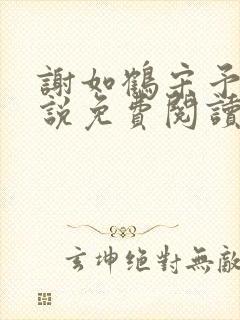 謝如鶴宋予
說免費閱讀
玄坤絕對無敵